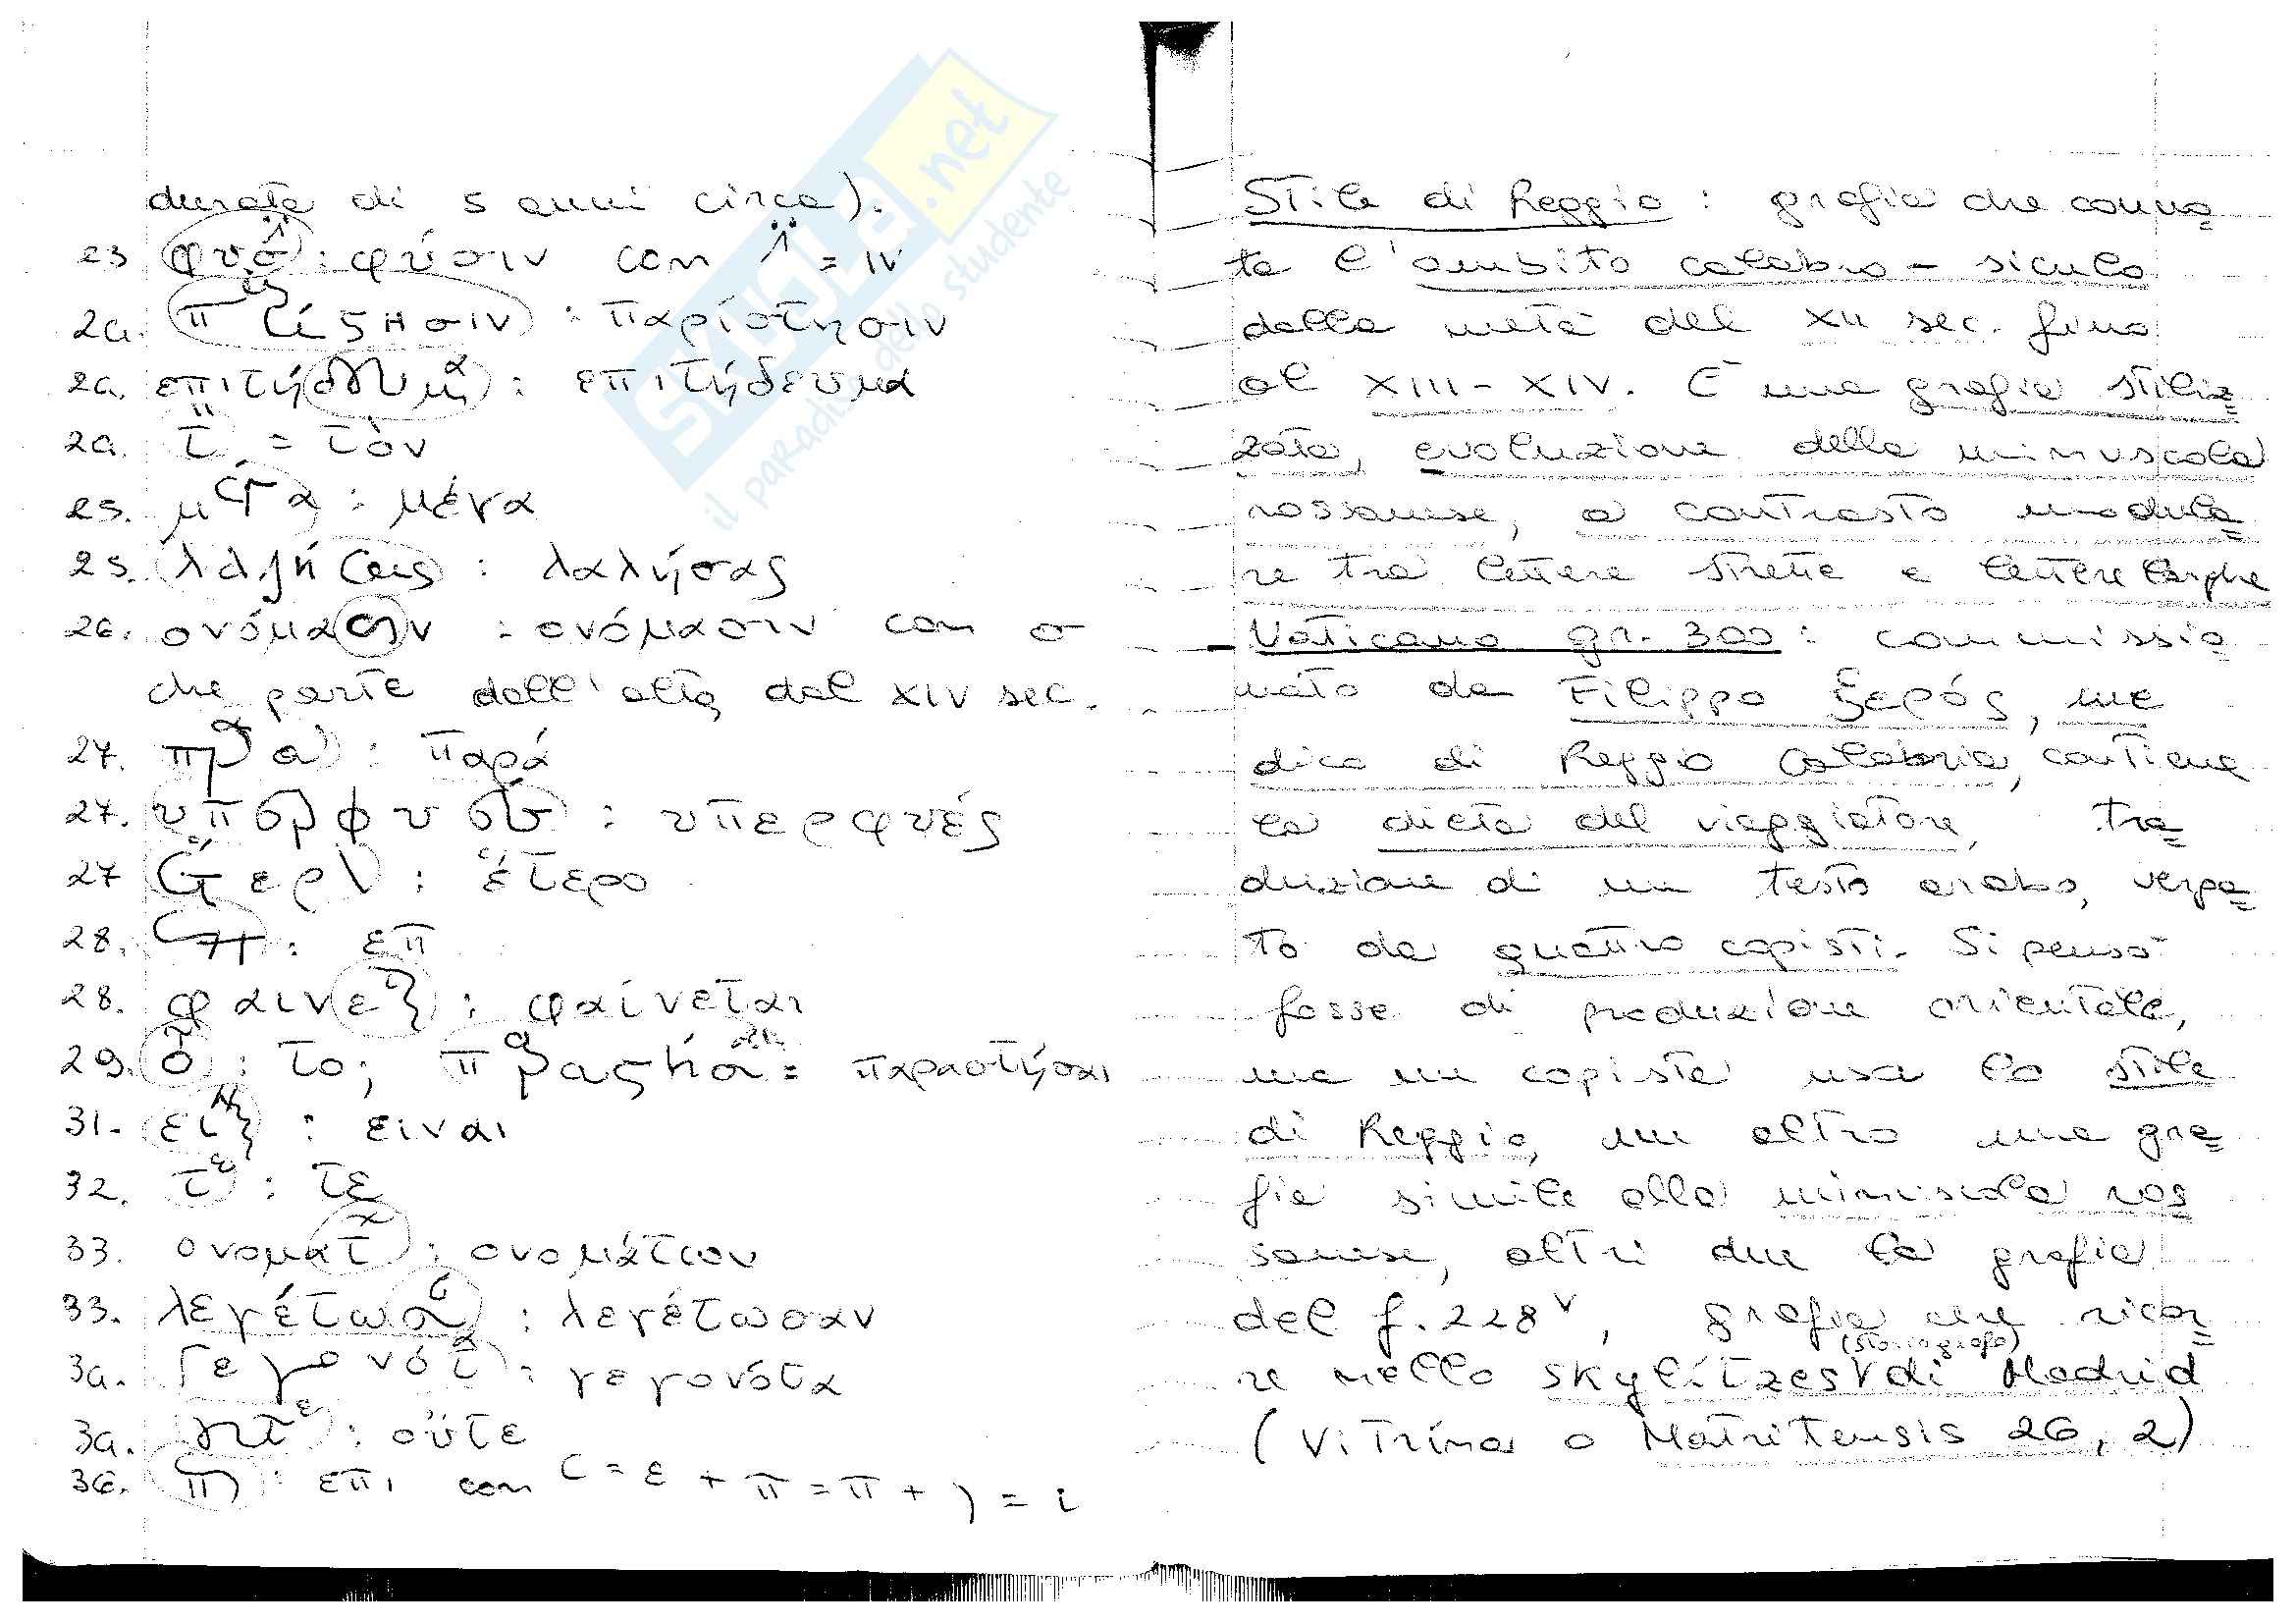 durata di 5 anni circa).
23 φυσ̈ : φύσιν con ⩑̈ = ιν
24. π ίςησιν : παρίστησιν
24. επιτήδευμα : επιτήδευμα
24. τ̈ = τὸν
25. μεγα : μέγα
25. λαλήσας : λαλήσας
26. ονόμασιν : ονόμασιν con σ
che parte dall'alto, dal XIV sec.
27. πρα : παρά
27. υπερφυσ : υπερφυές
27 ἕτερ\ : ἕτερο
28. επ : επ
28. φαινε : φαίνεται
29. ὀ : το; π ραςήσ = παραστήσαι
31. ει : ειναι
32. τε : τε
33. ονοματ : ονομάτων
33. λεγέτωσ : λεγέτωσαν
34. γεγονότ : γεγονότα
34. τε : ούτε
36. π : επι con C = ε + π = π + ) = ι
Stile di Reggio : grafia che conno=
ta l'ambito calabro-siculo
dalla metà del XII sec. fino
al XIII-XIV. È una grafia stiliz=
zata, evoluzione della minuscola
rossanese, a contrasto modula=
re tra lettere strette e lettere larghe
- Vaticano gr. 300 : commissio=
nato da Filippo Ξερός, me
dico di Reggio Calabria, contiene
la dieta del viaggiatore, tra=
duzione di un testo arabo, verga=
to da quattro copisti. Si pensò
fosse di produzione orientale,
ma un copista usa lo stile
di Reggio, un altro una gra=
fia simile alla minuscola ros
sanese, altri due la grafia
del f.228ᵛ, grafia che ricor=
re nello Skylitzes V di Madrid
(storiografo)
(Vitrina o Matritensis 26, 2)
SKUOLA.net
il paradiso dello studente